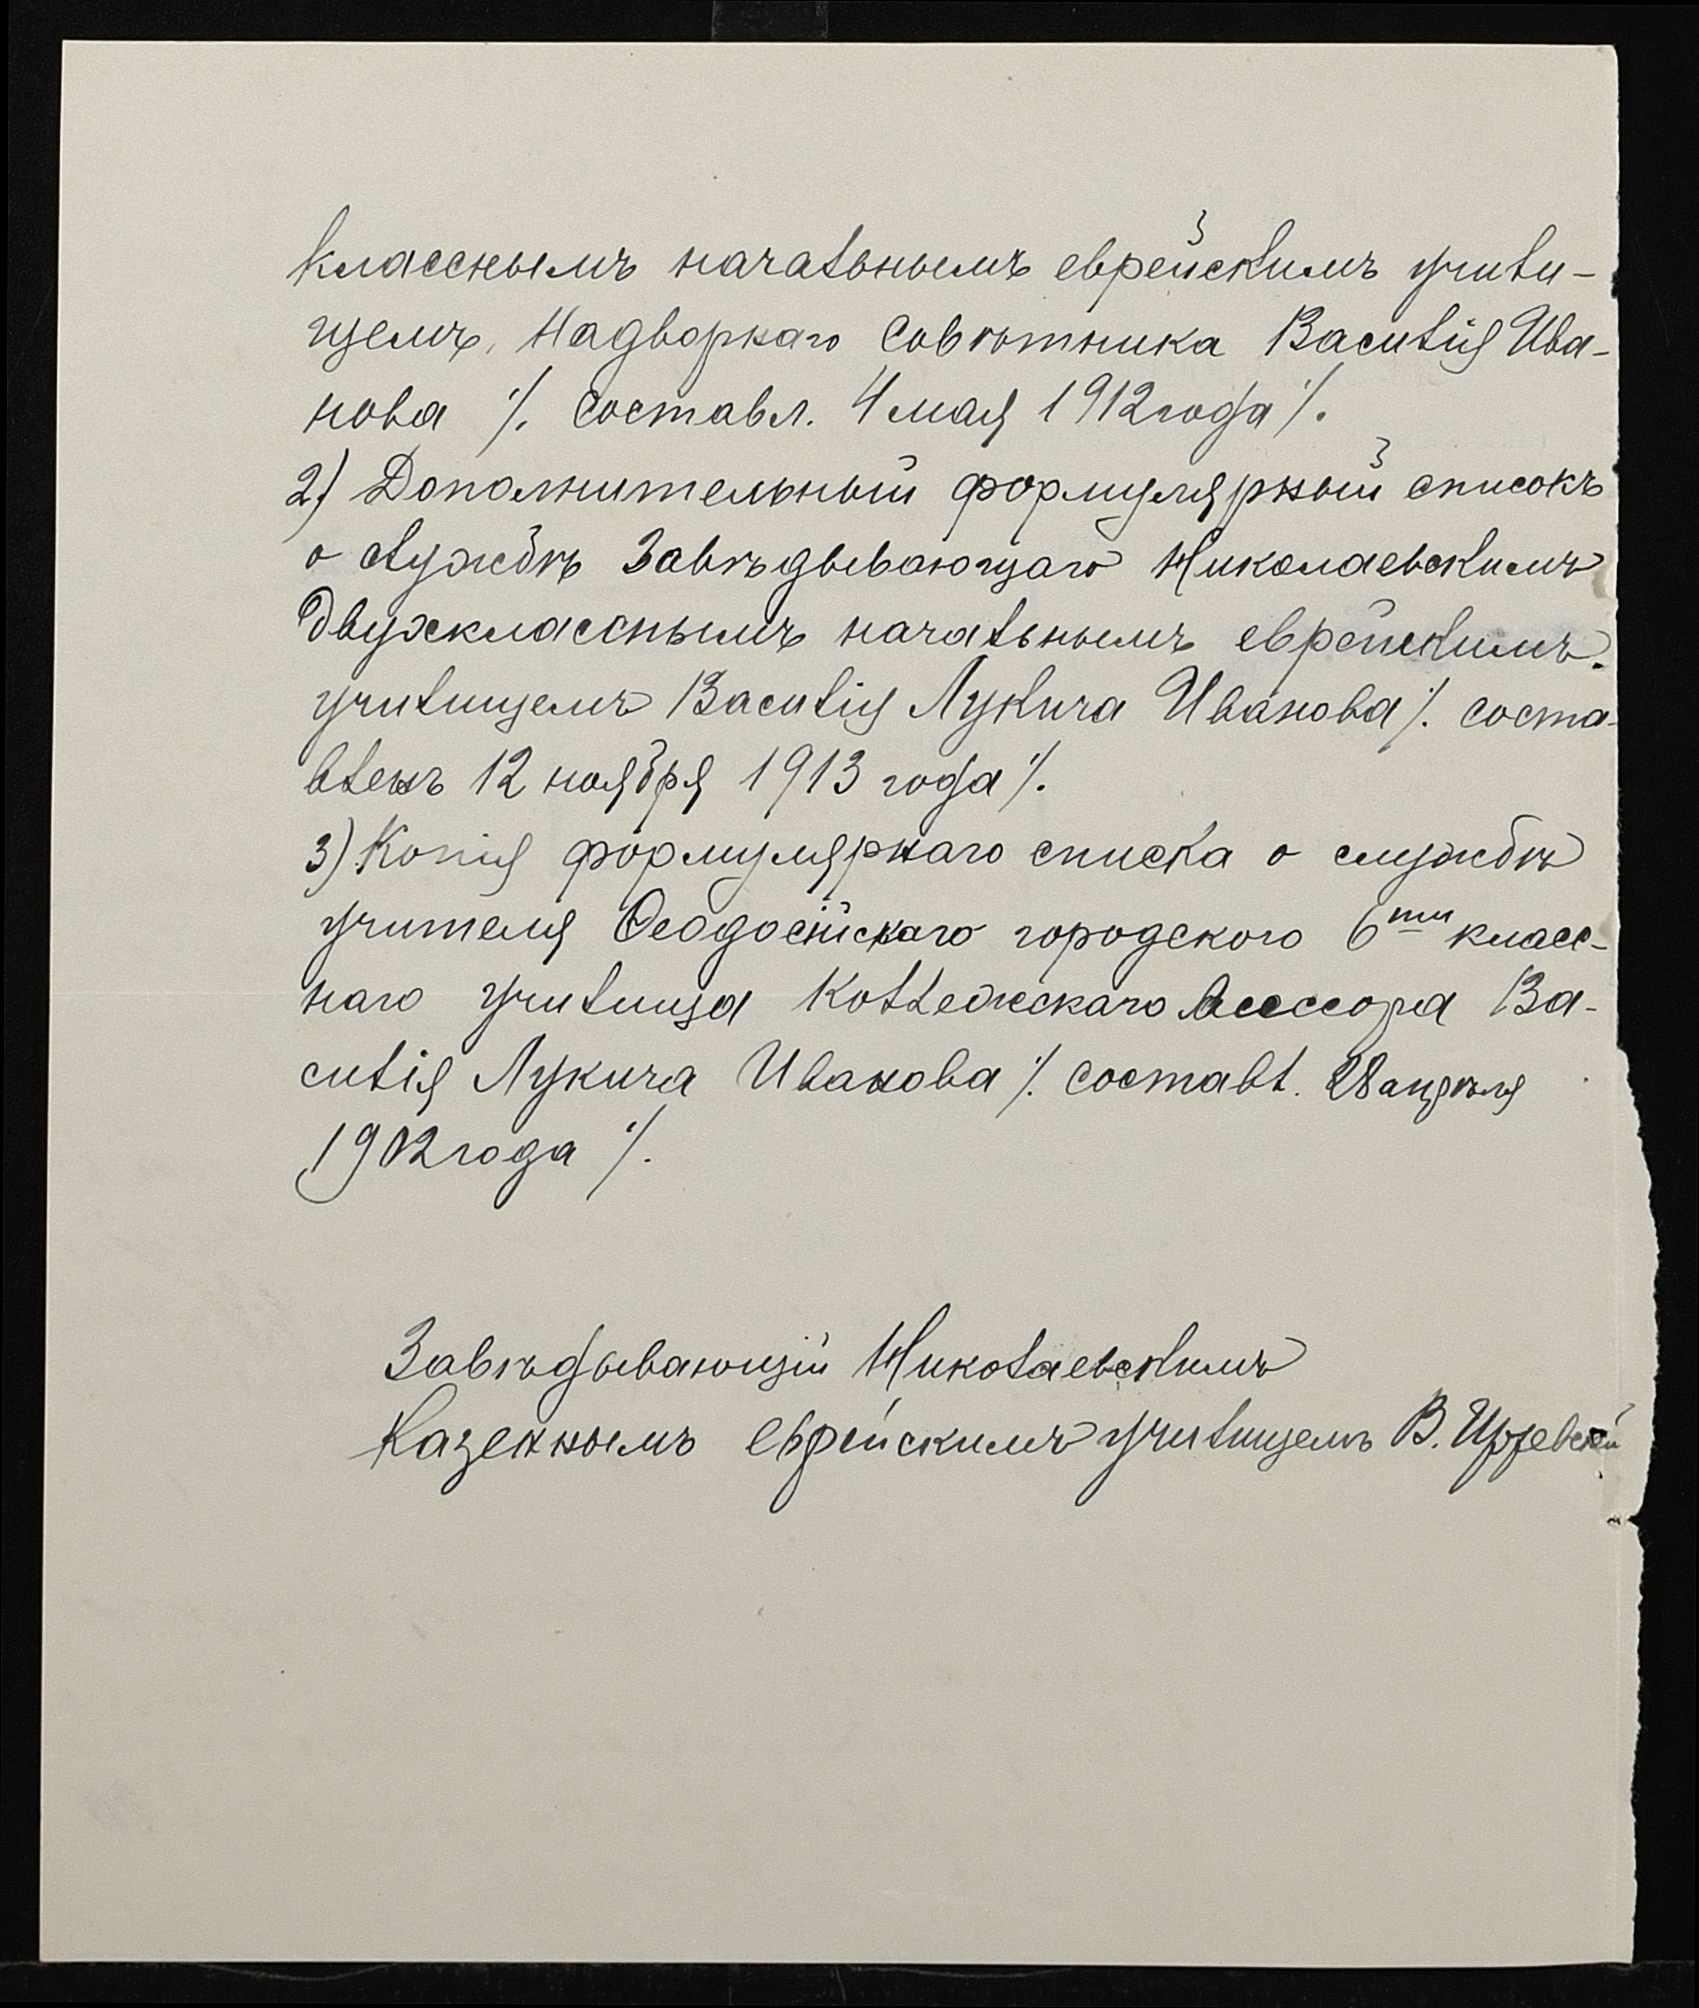 класснымъ начальнымъ еврейскимъ учили-
щемъ, Надворнаго Совѣтника Василія Ива-
нова /. составл. 4 мая 1912 года /.
2) Дополнительный формулярный списокъ
о службѣ Завѣдывающаго Николаевскимъ
Двухкласснымъ начальнымъ еврейскимъ
училищемъ Василія Лукича Иванова /. соста-
вленъ 12 ноября 1913 года /.
3) Копія формулярнаго списка о службѣ
учителя Ѳеодосійскаго городского 6ти класс-
наго училища Коллежскаго Ассесора Ва-
силія Лукича Иванова /. составл. 28 апрѣля
1902 года /.
Завѣдывающій Николаевскимъ
Казеннымъ еврейскимъ училищемъ В.